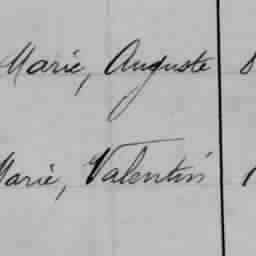 Marie, Auguste 8
Marie, Valentin 1